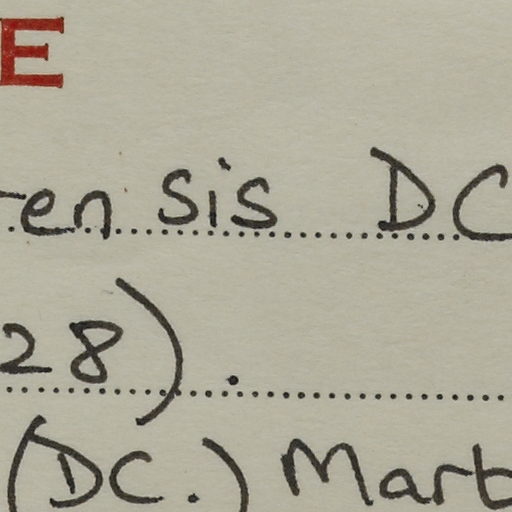 E
tensis DC
28).
(DC.) Mart